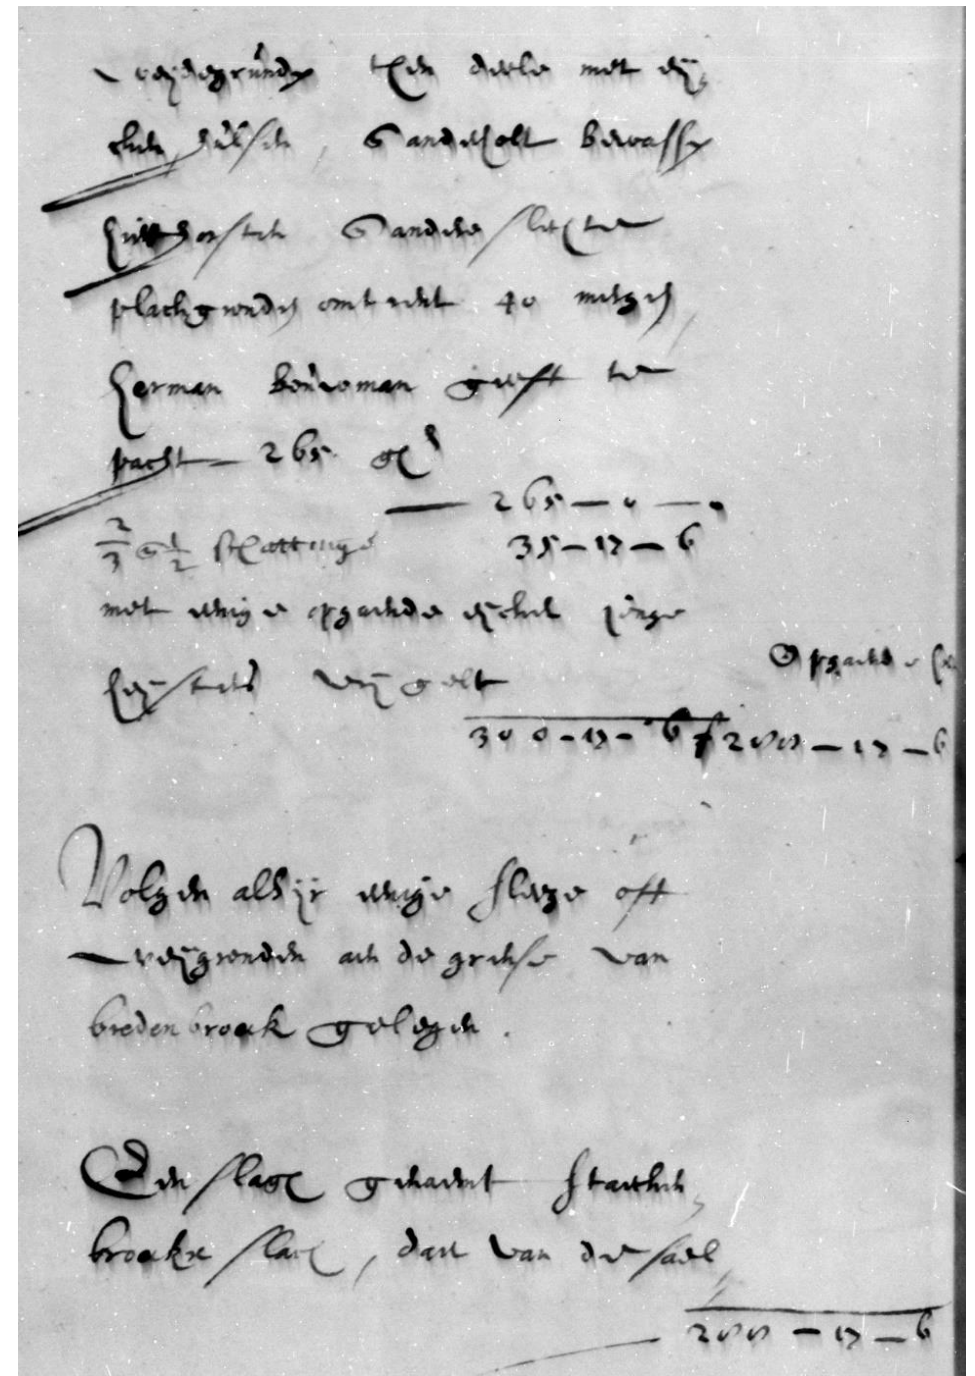 weijdegrundt ten deele met eij,
chen hulsen, & anderholt bewassen
Heet horsten & andere slechte
plachgronden omtrent 40 mergen,
Herman Bouwman geeft te
pacht — 265 gl
— 265 — 0 — 0
2/3 & 1/2 schattinge 35 — 17 — 6
met enige opgaende eijcken jonge
heijsters vrij gelt
Opgaende
300 — 17 — 6 f 200 — 17 — 6
Volgen alhijr enige slege off
weijgronden an de grense van
bredenbroek gelegen.
Een slagh genaemt staecken,
broekse slach, daer van die sael
200 — 17 — 6